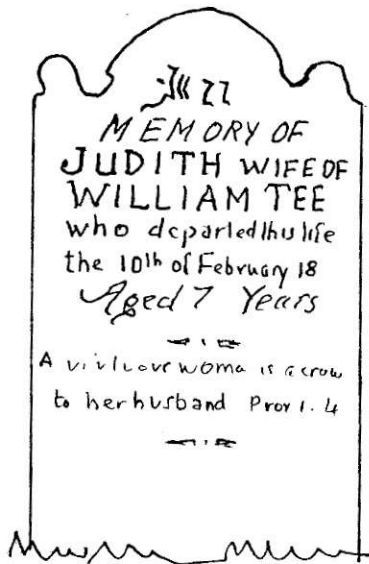 MEMORY OF
JUDITH WIFE OF
WILLIAM TEE
who departed this life
the 10th of February 18
Aged 7 Years
A woma is a crow
to her husband Prov 1. 4